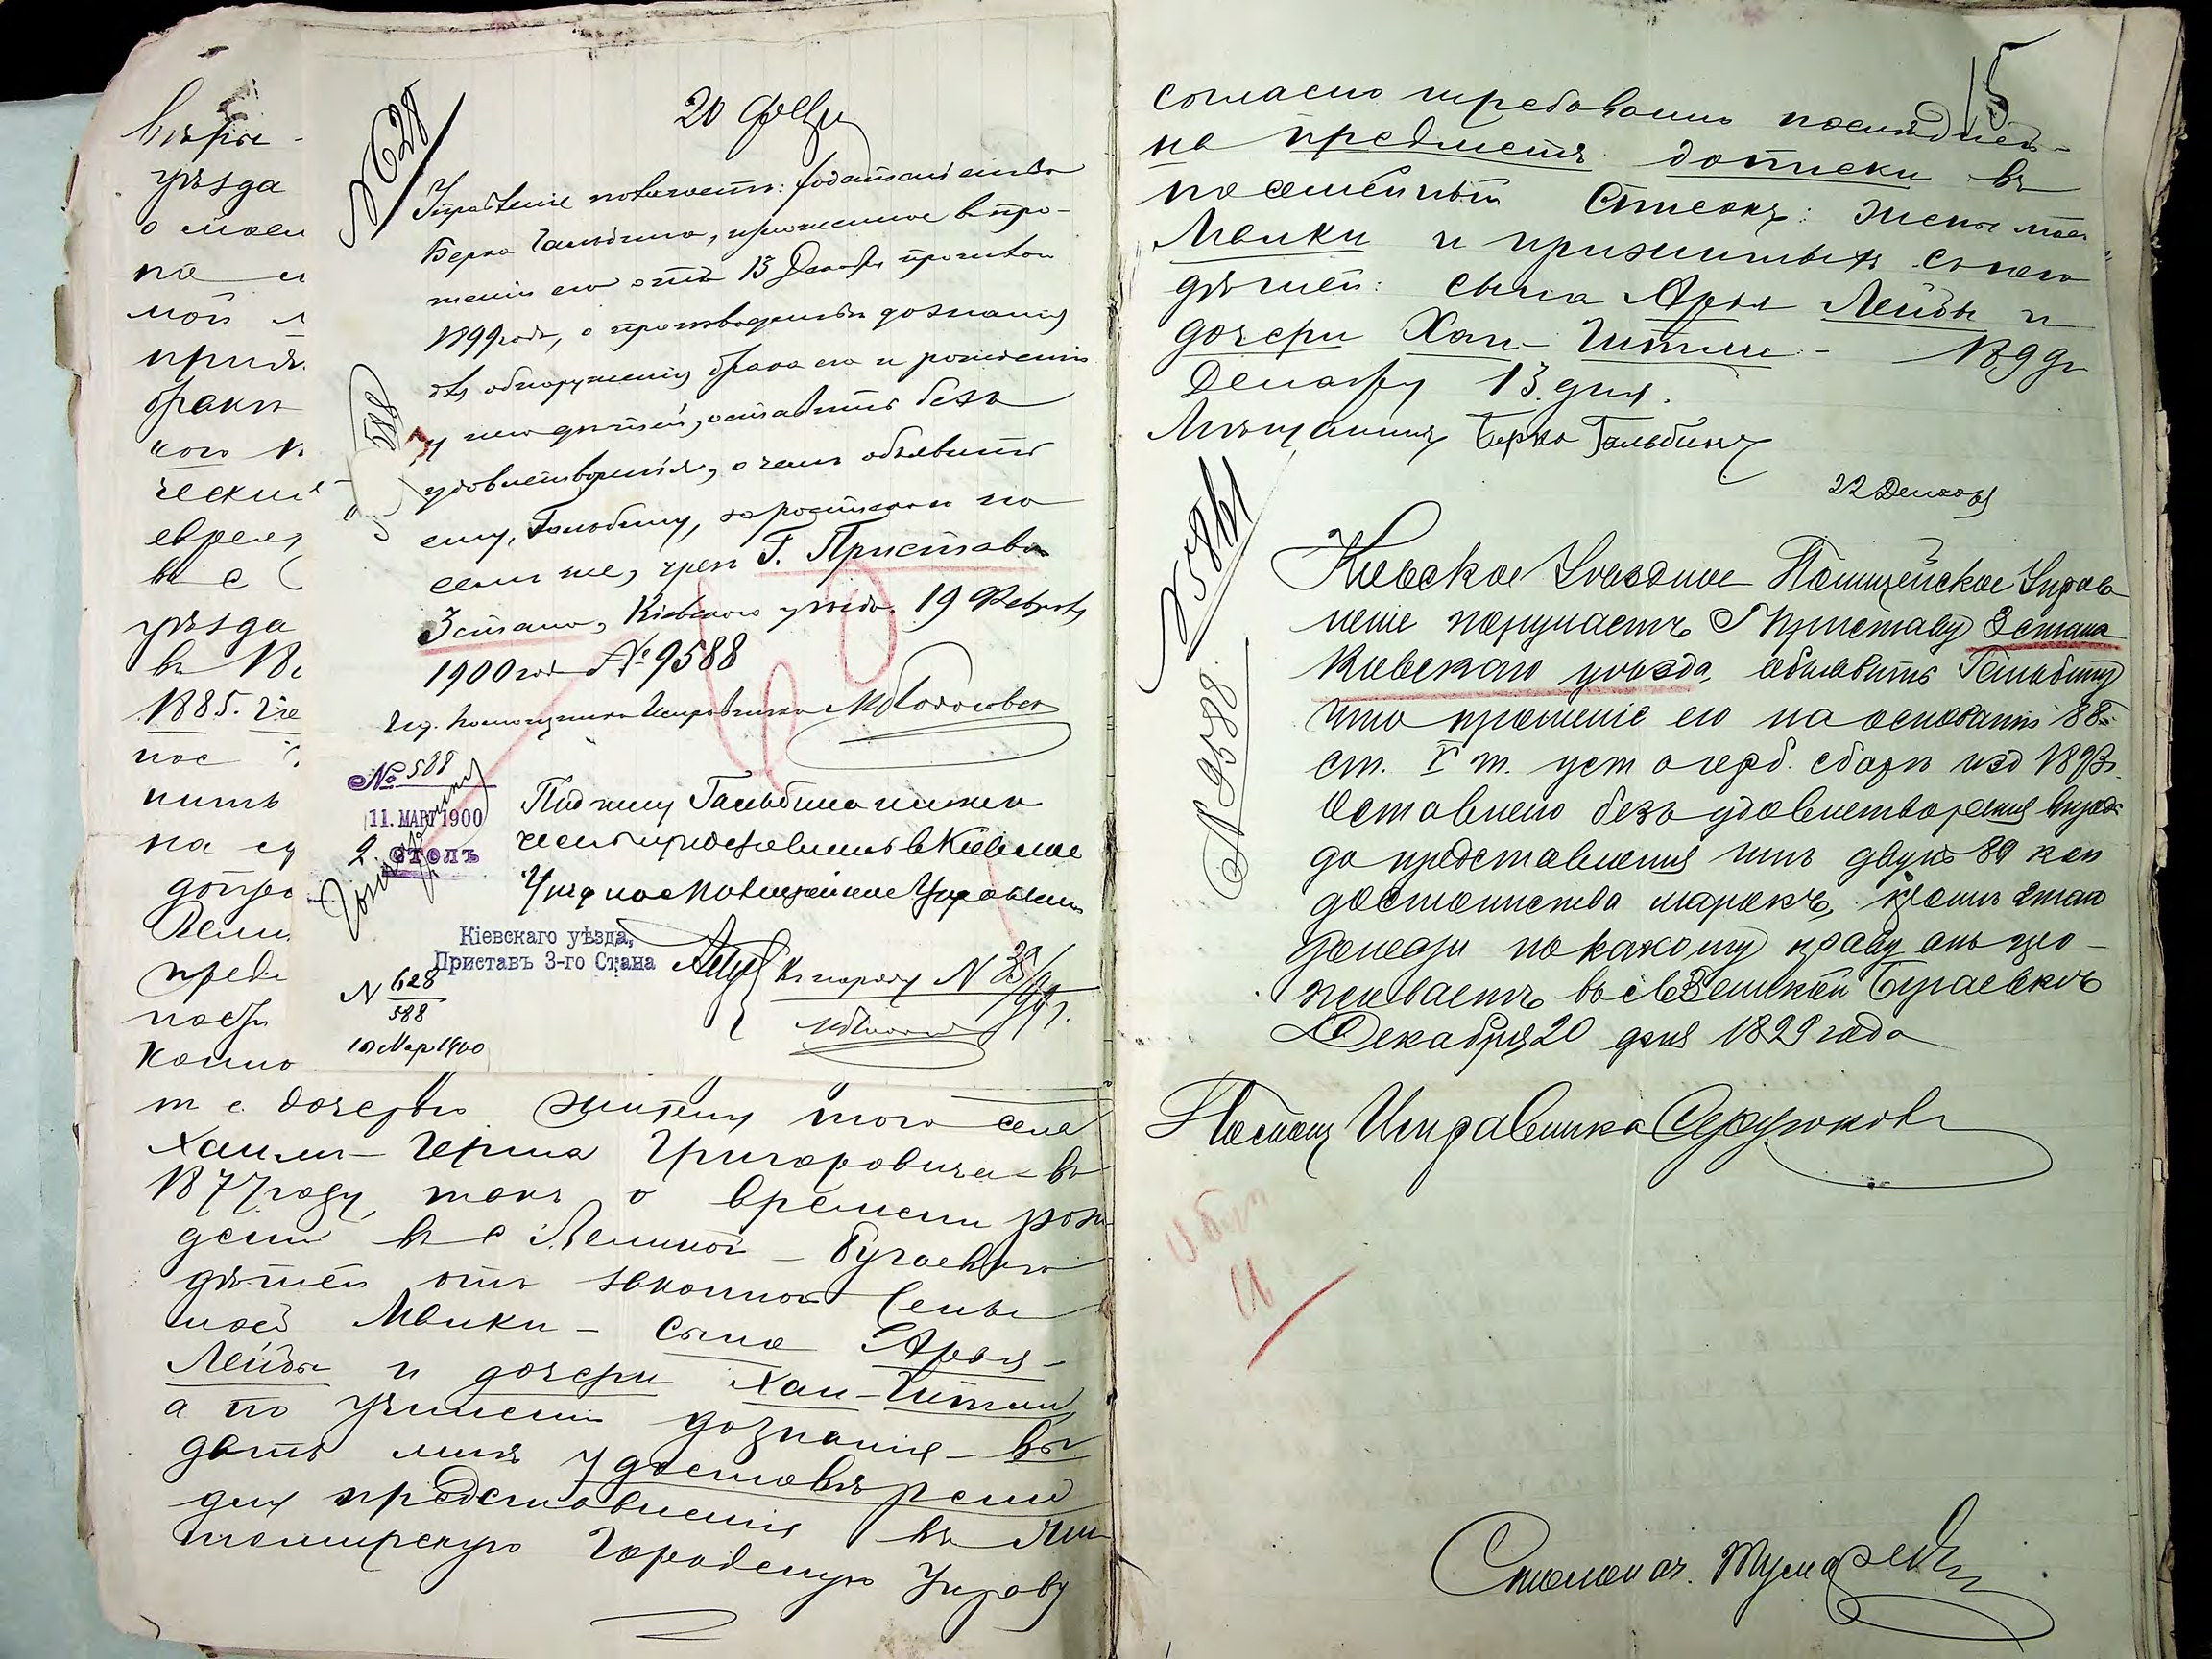 вѣры
уѣзда
о моем
по
мой
придѣ
браки
кого
ческий
евреям
въ с
уѣзда
въ 18
1885. г не
нос
нить
на су
допро
Вели
пред
пост
коимо
№ 628
20 февр
Управленіе полагаетъ: ходатайство
Берка Гальбина, изложенное въ про-
шеніи его отъ 13 Декабря прошлаго
1899 года, о производствѣ дознанія
для обнаруженія брака его и рожденія
у него дѣтей, оставить безъ
удовлетворенія, о чемъ объявить
ему, Гальбину, за роспискою на
семъ же, чрез Г. Пристава
3 стана, Кіевскаго уѣзда. 19 Февраля
1900 года № 9588
588
№ 588
11. МАРТ 1900
2 СТОЛЪ
Подписку Гальбина имѣю
честь представить въ Кіевское
Уѣздное Полицейское Управленіе
Кіевскаго уѣзда,
Приставъ 3-го Стана
N 628
588
10 Мар 1900
Къ наряду N
т е. дочерью жителя того села
Хаима-Герша Григоровича въ
1877 году, такъ о времени рож
денія въ с Великой-Бугаевкѣ
дѣтей отъ законной жены
моей Малки - сына Арья-
Лейбы и дочери Хаи-Гитли,
а по учиненіи дознанія - вы
дать мнѣ удостовѣреніе
для представленія въ Жи
томирскую Городскую Управу
15
согласно требованію послѣдней
на предметъ дописки въ
посемейный списокъ: жены моей
Малки и прижитыхъ съ нею
дѣтей: сына Арья Лейбы и
дочери Хаи-Гитли - 1899 г
Декабря 13 дня.
Мѣщанинъ Берко Гальбинъ
22 Декабря
№ 9588
Кіевское Уѣздное Полицейское Управ
леніе поручаетъ Г Приставу 3 стана
Кіевскаго уѣзда, объявить Гальбину
что прошеніе его на основаніи 88
ст. V т. уст о герб. сборѣ изд 1893 г.
оставлено безъ удовлетворенія впредь
до представленія имъ двухъ 80 коп
достоинства марокъ,
донести по какому праву онъ про-
живаетъ въ с Великой Бугаевкѣ
Декабря 20 дня 1899 года
Помощ Исправника
Столонач.